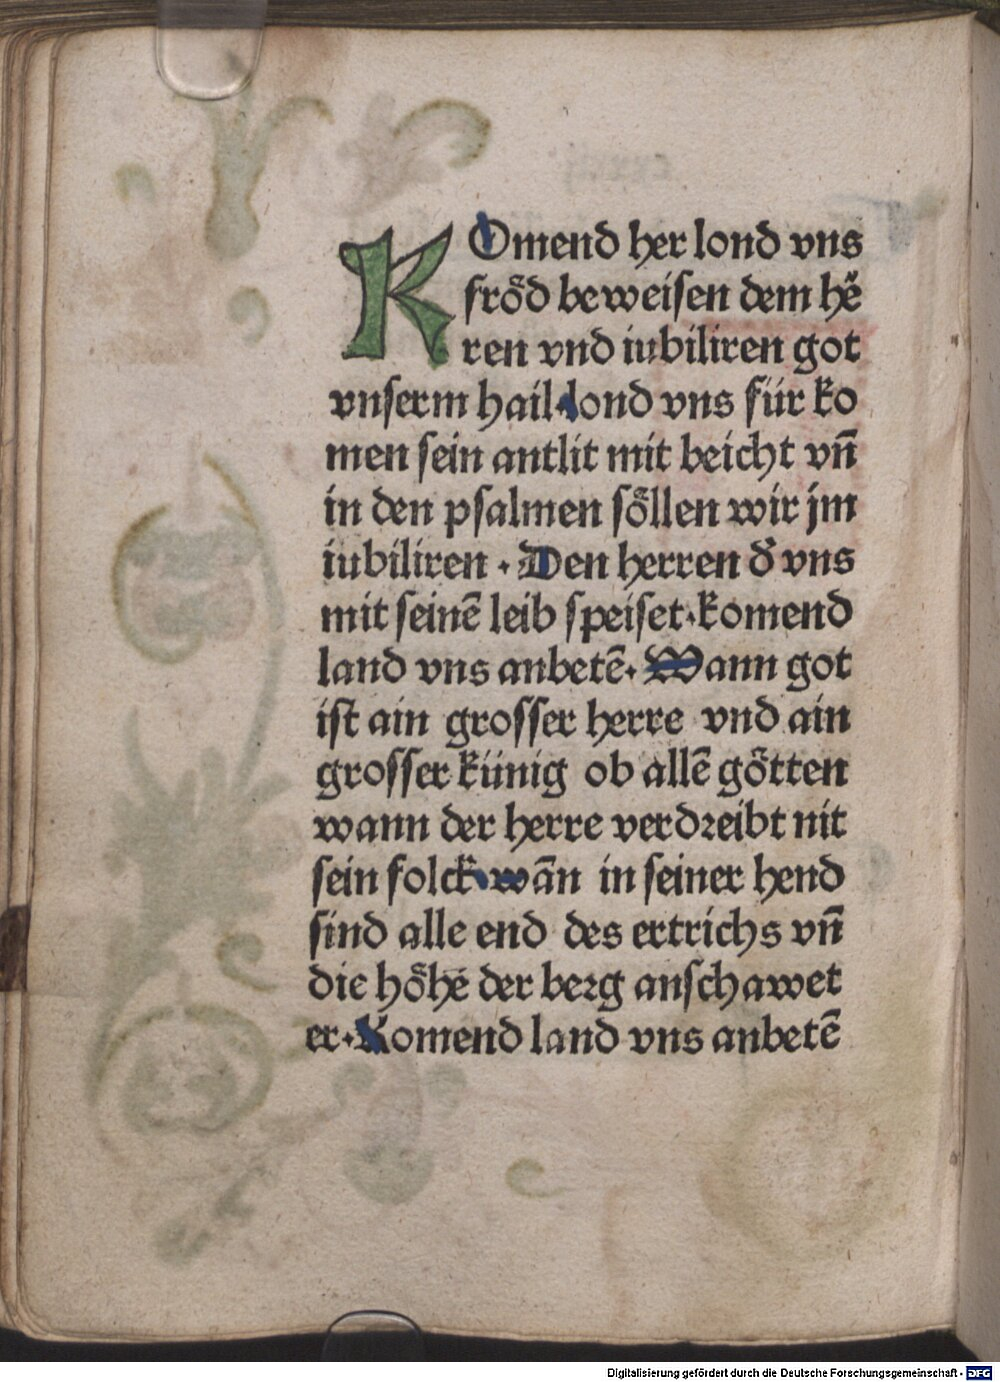 KOmend her lond vns
froͤd beweisen dem hē
ren vnd iubiliren got
vnserm hail·lond vns für ko
men sein antlit mit beicht vn̄
in den psalmen soͤllen wir jm
iubiliren · Den herren d̕ vns
mit seinē leib speiset·komend
land vns anbetē· Wann got
ist ain grosser herre vnd ain
grosser künig ob allē goͤtten
wann der herre verdreibt nit
sein folck wān in seiner hend
sind alle end des ertrichs vn̄
die hoͤhe der berg anschawet
er·Komend land vns anbetē
Digitalisierung gefördert durch die Deutsche Forschungsgemeinschaft - DFG